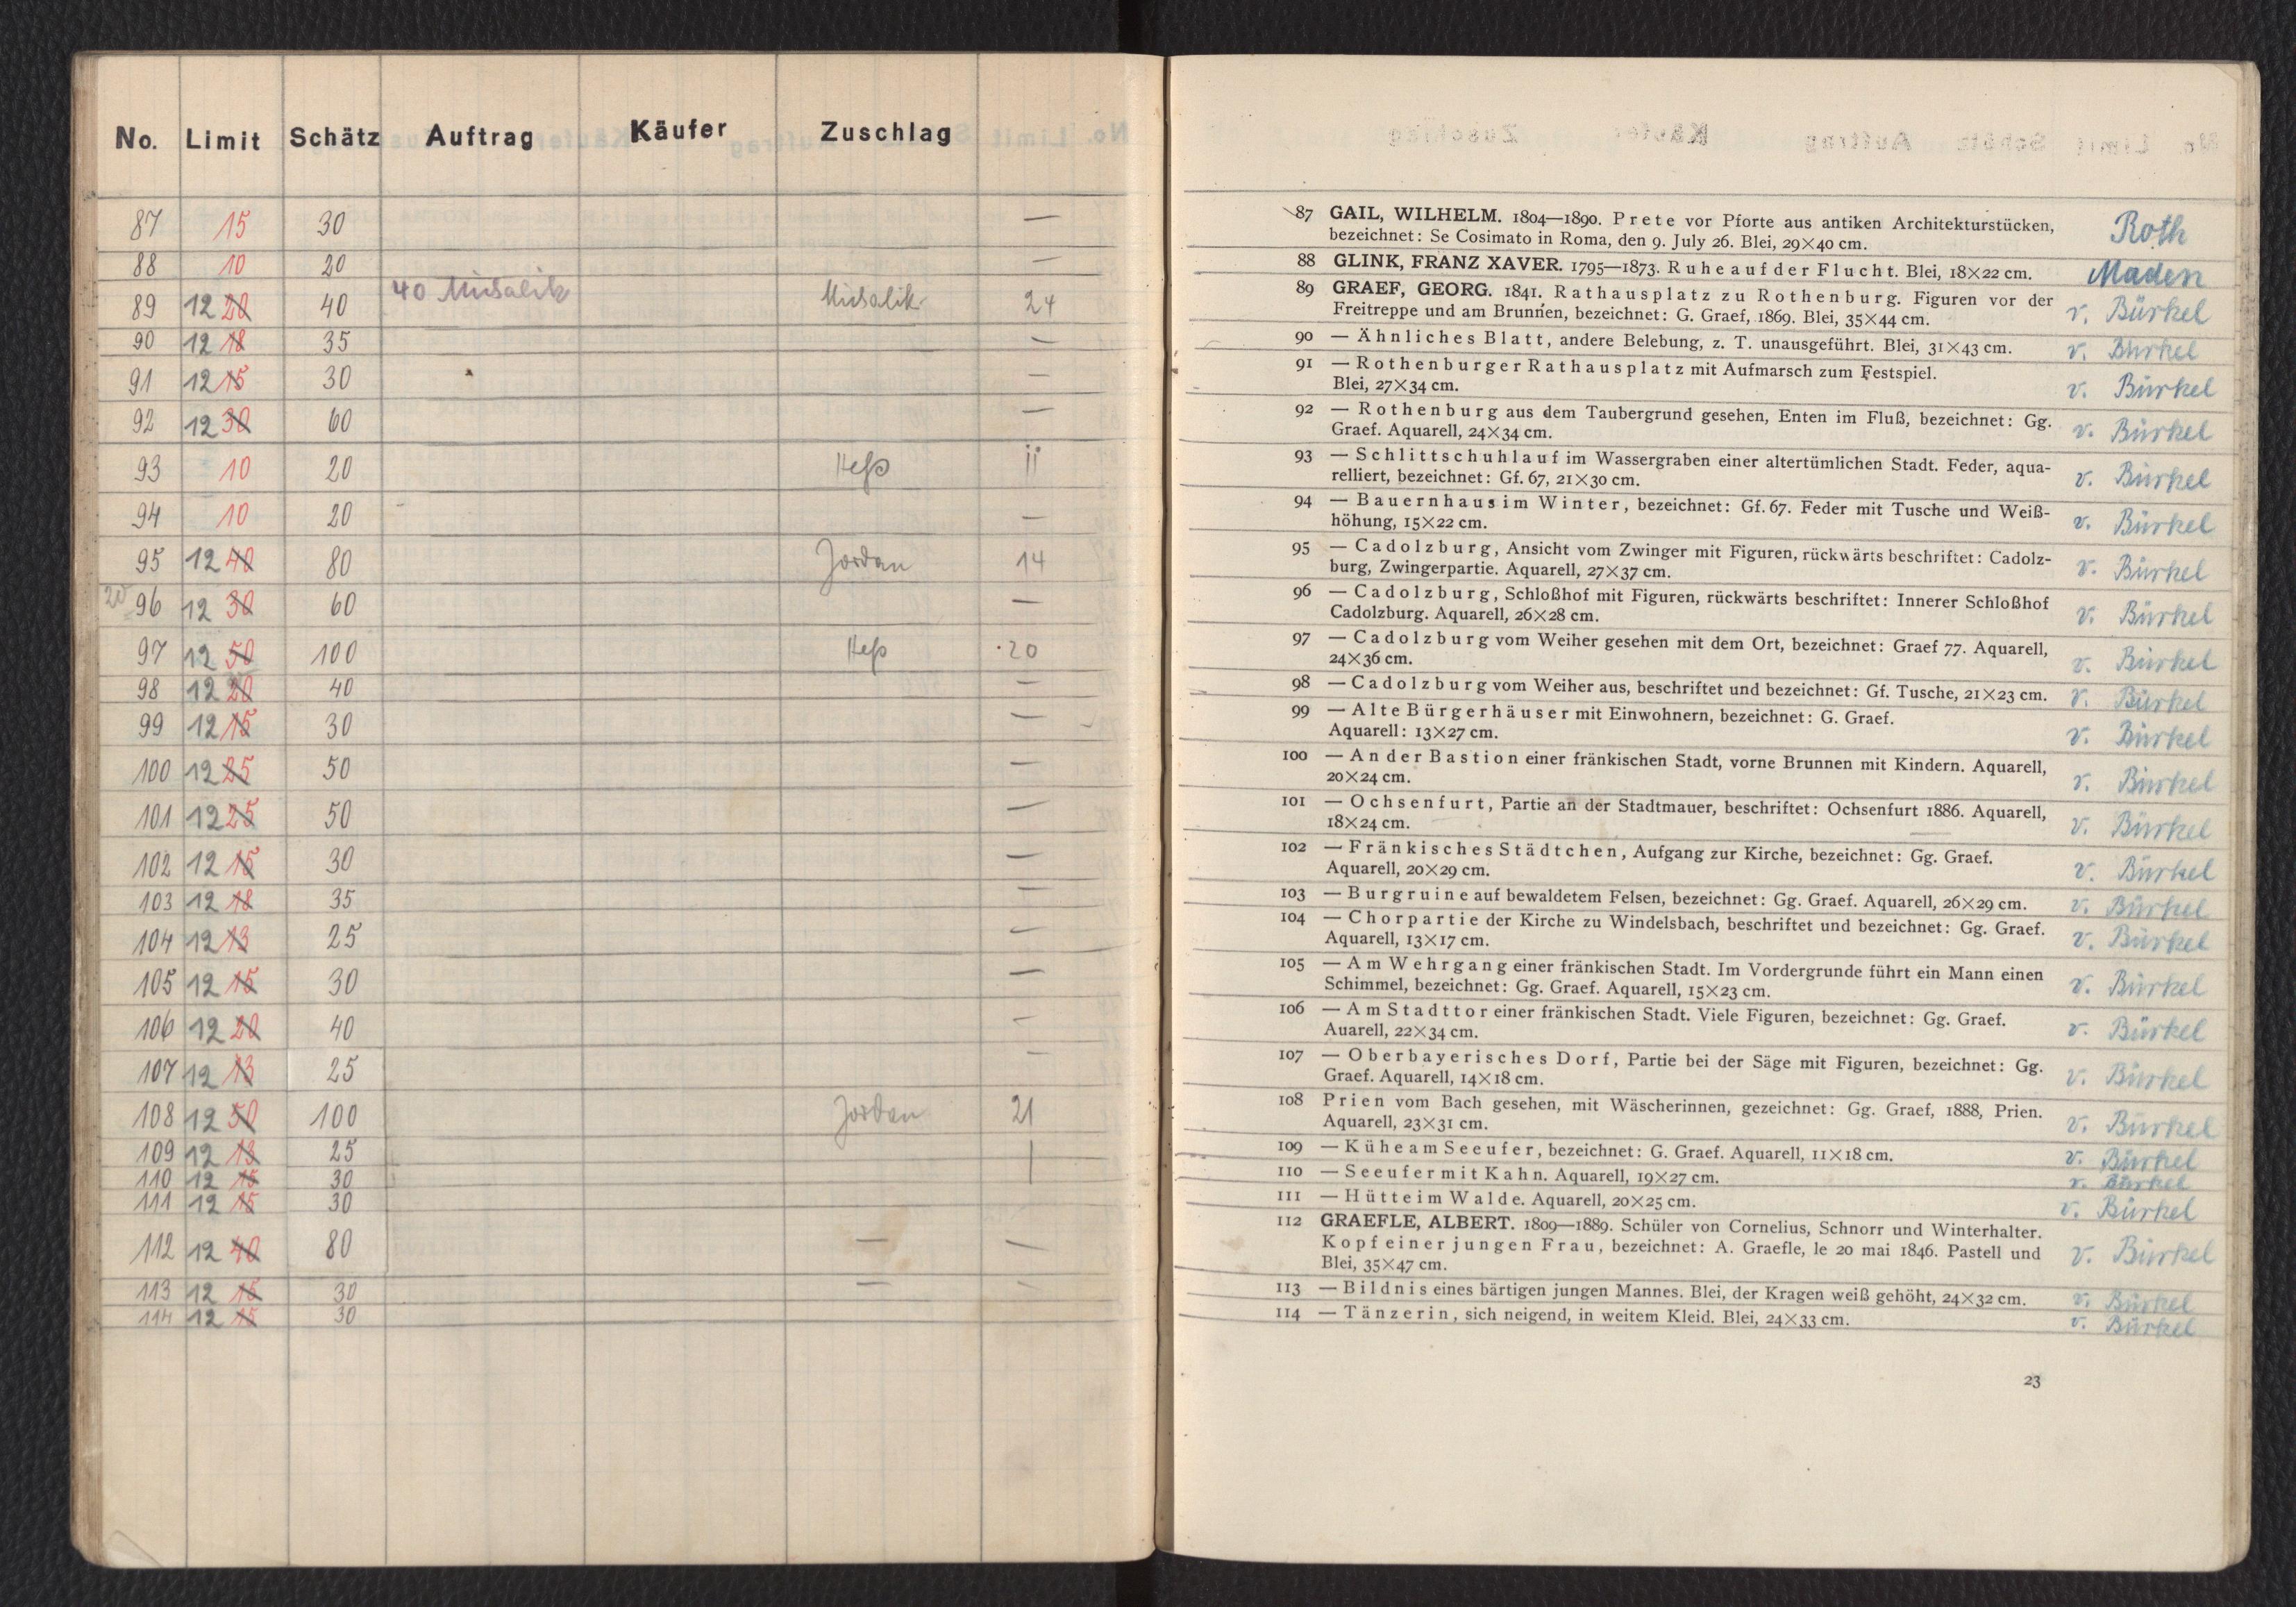 No. Limit Schätz Auftrag Käufer Zuschlag
87 15 30 —
88 10 20 —
89 12 20 40 40 24
90 12 18 35 —
91 12 15 30 —
92 12 30 60 —
93 10 20 Heß 11
94 10 20 —
95 12 40 80 Jordan 14
20 96 12 30 60 —
97 12 50 100 Heß 20
98 12 20 40 —
99 12 15 30 —
100 12 25 50 —
101 12 25 50 —
102 12 15 30 —
103 12 18 35 —
104 12 13 25 —
105 12 15 30 —
106 12 20 40 —
107 12 13 25 —
108 12 50 100 Jordan 21
109 12 13 25
110 12 15 30
111 12 15 30
112 12 40 80 — —
113 12 15 30 — —
114 12 15 30
87 GAIL, WILHELM. 1804—1890. Prete vor Pforte aus antiken Architekturstücken, Roth
bezeichnet: Se Cosimato in Roma, den 9. July 26. Blei, 29×40 cm.
88 GLINK, FRANZ XAVER. 1795—1873. Ruhe auf der Flucht. Blei, 18×22 cm. Maden
89 GRAEF, GEORG. 1841. Rathausplatz zu Rothenburg. Figuren vor der v. Bürkel
Freitreppe und am Brunnen, bezeichnet: G. Graef, 1869. Blei, 35×44 cm.
90 — Ähnliches Blatt, andere Belebung, z. T. unausgeführt. Blei, 31×43 cm. v. Bürkel
91 — Rothenburger Rathausplatz mit Aufmarsch zum Festspiel. v. Bürkel
Blei, 27×34 cm.
92 — Rothenburg aus dem Taubergrund gesehen, Enten im Fluß, bezeichnet: Gg. v. Bürkel
Graef. Aquarell, 24×34 cm.
93 — Schlittschuhlauf im Wassergraben einer altertümlichen Stadt. Feder, aqua- v. Bürkel
relliert, bezeichnet: Gf. 67, 21×30 cm.
94 — Bauernhaus im Winter, bezeichnet: Gf. 67. Feder mit Tusche und Weiß- v. Bürkel
höhung, 15×22 cm.
95 — Cadolzburg, Ansicht vom Zwinger mit Figuren, rückwärts beschriftet: Cadolz- v. Bürkel
burg, Zwingerpartie. Aquarell, 27×37 cm.
96 — Cadolzburg, Schloßhof mit Figuren, rückwärts beschriftet: Innerer Schloßhof v. Bürkel
Cadolzburg. Aquarell, 26×28 cm.
97 — Cadolzburg vom Weiher gesehen mit dem Ort, bezeichnet: Graef 77. Aquarell, v. Bürkel
24×36 cm.
98 — Cadolzburg vom Weiher aus, beschriftet und bezeichnet: Gf. Tusche, 21×23 cm. v. Bürkel
99 — Alte Bürgerhäuser mit Einwohnern, bezeichnet: G. Graef. v. Bürkel
Aquarell: 13×27 cm.
100 — An der Bastion einer fränkischen Stadt, vorne Brunnen mit Kindern. Aquarell, v. Bürkel
20×24 cm.
101 — Ochsenfurt, Partie an der Stadtmauer, beschriftet: Ochsenfurt 1886. Aquarell, v. Bürkel
18×24 cm.
102 — Fränkisches Städtchen, Aufgang zur Kirche, bezeichnet: Gg. Graef. v. Bürkel
Aquarell, 20×29 cm.
103 — Burgruine auf bewaldetem Felsen, bezeichnet: Gg. Graef. Aquarell, 26×29 cm. v. Bürkel
104 — Chorpartie der Kirche zu Windelsbach, beschriftet und bezeichnet: Gg. Graef. v. Bürkel
Aquarell, 13×17 cm.
105 — Am Wehrgang einer fränkischen Stadt. Im Vordergrunde führt ein Mann einen v. Bürkel
Schimmel, bezeichnet: Gg. Graef. Aquarell, 15×23 cm.
106 — Am Stadttor einer fränkischen Stadt. Viele Figuren, bezeichnet: Gg. Graef. v. Bürkel
Auarell, 22×34 cm.
107 — Oberbayerisches Dorf, Partie bei der Säge mit Figuren, bezeichnet: Gg. v. Bürkel
Graef. Aquarell, 14×18 cm.
108 Prien vom Bach gesehen, mit Wäscherinnen, gezeichnet: Gg. Graef, 1888, Prien. v. Bürkel
Aquarell, 23×31 cm.
109 — Kühe am Seeufer, bezeichnet: G. Graef. Aquarell, 11×18 cm. v. Bürkel
110 — Seeufer mit Kahn. Aquarell, 19×27 cm. v. Bürkel
111 — Hütte im Walde. Aquarell, 20×25 cm. v. Bürkel
112 GRAEFLE, ALBERT. 1809—1889. Schüler von Cornelius, Schnorr und Winterhalter.
Kopf einer jungen Frau, bezeichnet: A. Graefle, le 20 mai 1846. Pastell und v. Bürkel
Blei, 35×47 cm.
113 — Bildnis eines bärtigen jungen Mannes. Blei, der Kragen weiß gehöht, 24×32 cm. v. Bürkel
114 — Tänzerin, sich neigend, in weitem Kleid. Blei, 24×33 cm. v. Bürkel
23